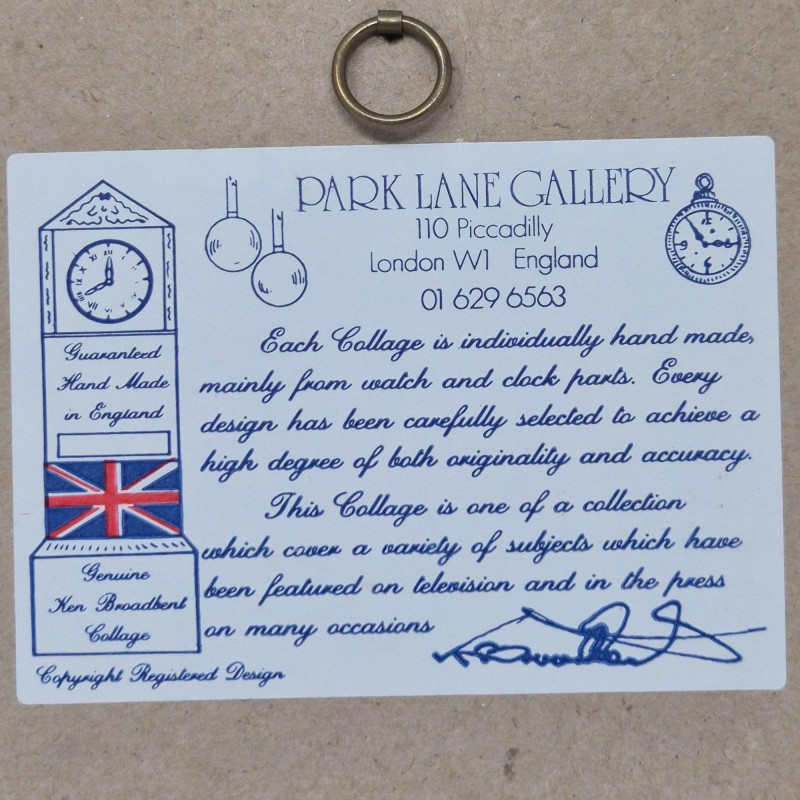 PARK LANE GALLERY
110 Piccadilly
London W1 England
01 629 6563
Each Collage is individually hand made,
mainly from watch and clock parts. Every
design has been carefully selected to achieve a
high degree of both originality and accuracy.
This Collage is one of a collection
which cover a variety of subjects which have
been featured on television and in the press
on many occasions
Guaranteed
Hand Made
in England
Genuine
Ken Broadbent
Collage
Copyright Registered Design